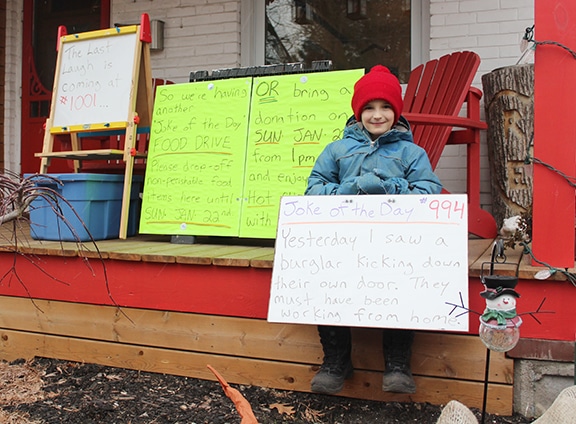 The Last
Laugh is
coming at
#1001...
So we're having
another
"Joke of the Day"
FOOD DRIVE
Please drop-off
non-perishable food
items here until
SUN. JAN. 22nd
OR bring a
donation on
SUN. JAN. 22
from 1pm
and enjoy
Hot
with
Joke of the Day 994
Yesterday I saw a
burglar kicking down
their own door. They
must have been
working from home.